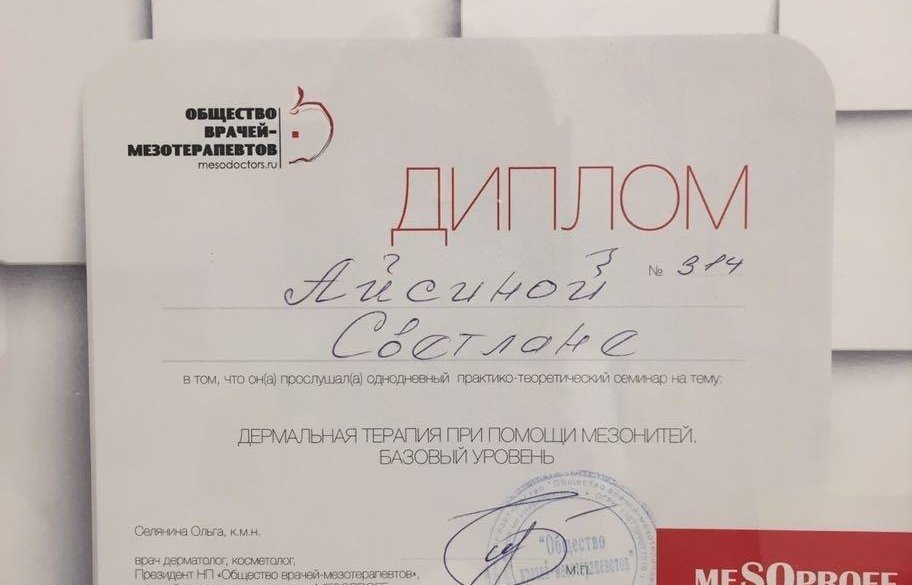 ОБЩЕСТВО
ВРАЧЕЙ-
МЕЗОТЕРАПЕВТОВ
mesodoctors.ru
ДИПЛОМ
№ 314
Айсиной
Светлане
в том, что он(а) прослушал(а) однодневный практико-теоретический семинар на тему:
ДЕРМАЛЬНАЯ ТЕРАПИЯ ПРИ ПОМОЩИ МЕЗОНИТЕЙ.
БАЗОВЫЙ УРОВЕНЬ
Селянина Ольга, к.м.н.
врач дерматолог, косметолог,
Президент НП «Общество врачей-мезотерапевтов»,
м.п.
"Общество
врачей-мезотерапевтов"
MESOPROFF